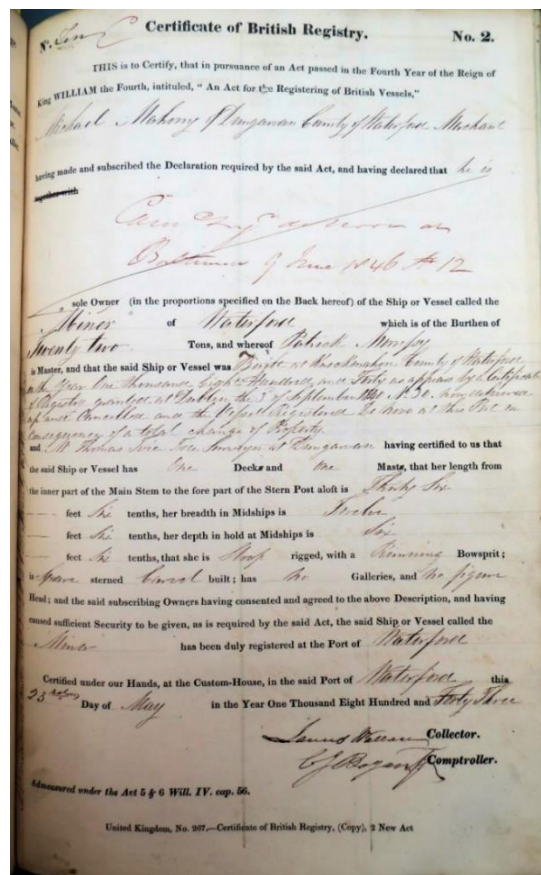 Nº. Ten
Certificate of British Registry.
No. 2.
THIS is to Certify, that in pursuance of an Act passed in the Fourth Year of the Reign of
King WILLIAM the Fourth, intituled, "An Act for the Registering of British Vessels,"
Michael Mahony of Dungarvan County of Waterford Merchant
having made and subscribed the Declaration required by the said Act, and having declared that he is
together with
de novo at
Baltimore 9 June 1846 No 12
sole Owner (in the proportions specified on the Back hereof) of the Ship or Vessel called the
"Minor" of Waterford which is of the Burthen of
Twenty two Tons, and whereof Patrick Morrissy
is Master, and that the said Ship or Vessel was Built at Knockmahon County of Waterford
in the Year One thousand Eight Hundred and Forty as appears by a Certificate
of Registry granted at Dublin the 3 of September 1841 No 30 now delivered
up and Cancelled and the Vessel Registered De novo at this Port in
consequence of a total change of Property
and Mr Thomas Tide Surveyor at Dungarvan having certified to us that
the said Ship or Vessel has One Decks and One Masts, that her length from
the inner part of the Main Stem to the fore part of the Stern Post aloft is Thirty Six
feet Six tenths, her breadth in Midships is Twelve
feet Six tenths, her depth in hold at Midships is Six
feet Six tenths, that she is Sloop rigged, with a Running Bowsprit;
is Square sterned Carvel built; has No Galleries, and No figure
Head; and the said subscribing Owners having consented and agreed to the above Description, and having
caused sufficient Security to be given, as is required by the said Act, the said Ship or Vessel called the
Minor has been duly registered at the Port of Waterford
Certified under our Hands, at the Custom-House, in the said Port of Waterford this
23rd Day of May in the Year One Thousand Eight Hundred and Forty Three
James Collector.
Comptroller.
Admeasured under the Act 5 & 6 Will. IV. cap. 56.
United Kingdom, No. 267.—Certificate of British Registry, (Copy), 2 New Act